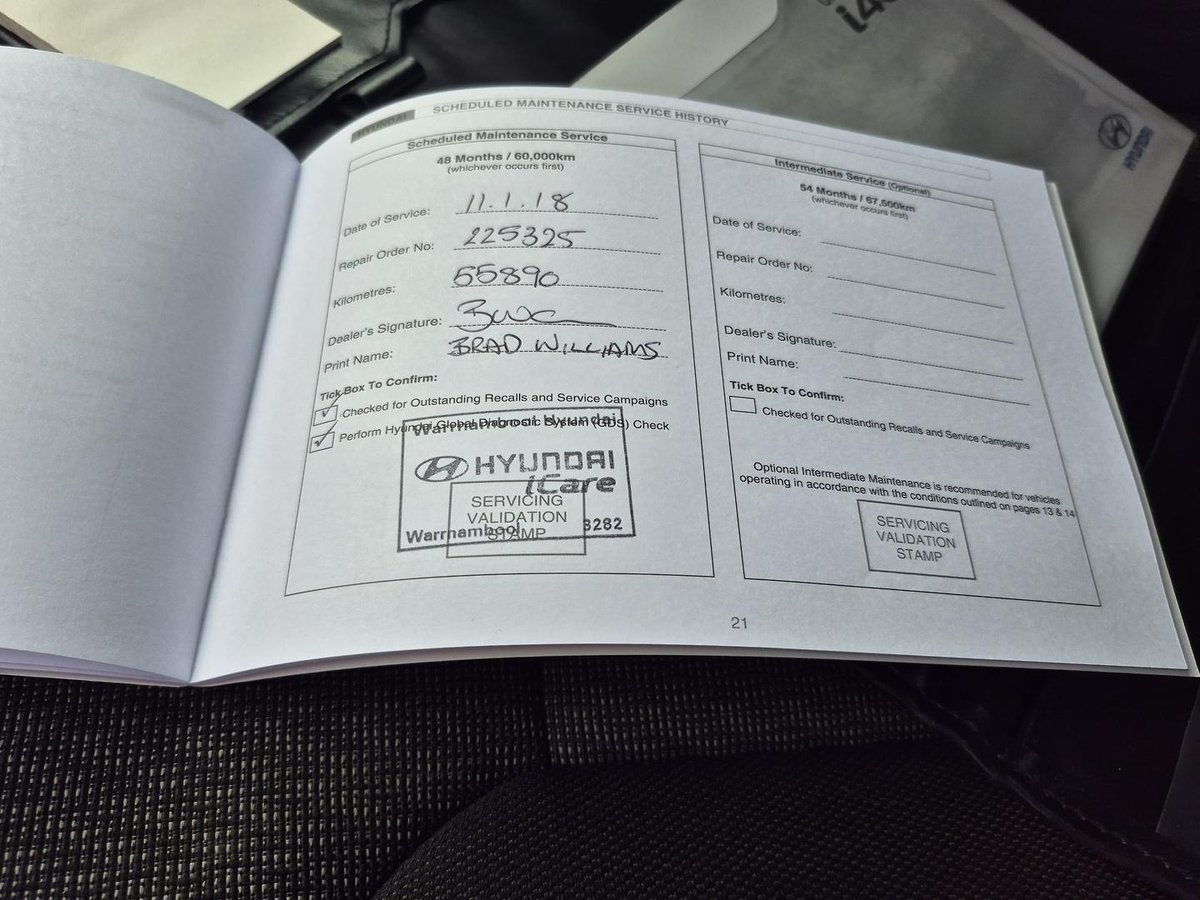 i40
HYUNDAI
HYUNDAI SCHEDULED MAINTENANCE SERVICE HISTORY
Scheduled Maintenance Service
48 Months / 60,000km
(whichever occurs first)
Date of Service: 11.1.18
Repair Order No: 225325
Kilometres: 55890
Dealer's Signature:
Print Name: BRAD WILLIAMS
Tick Box To Confirm:
Checked for Outstanding Recalls and Service Campaigns
Perform Hyundai Global Diagnostic System (GDS) Check
Warrnambool Hyundai
HYUNDAI
iCare
SERVICING
VALIDATION
STAMP
Warrnambool 3282
Intermediate Service (Optional)
54 Months / 67,500km
(whichever occurs first)
Date of Service:
Repair Order No:
Kilometres:
Dealer's Signature:
Print Name:
Tick Box To Confirm:
Checked for Outstanding Recalls and Service Campaigns
Optional Intermediate Maintenance is recommended for vehicles
operating in accordance with the conditions outlined on pages 13 & 14
SERVICING
VALIDATION
STAMP
21